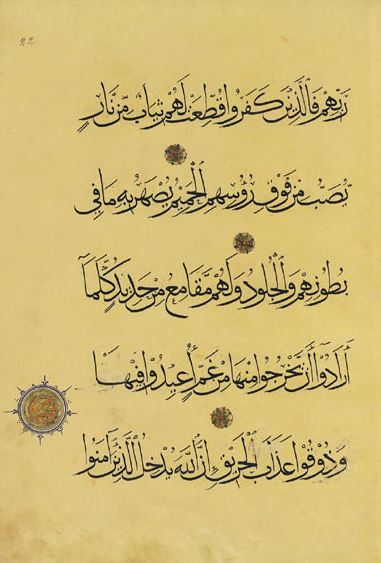 ٩٢
رَبِّهِمْ فَالَّذِينَ كَفَرُوا قُطِّعَتْ لَهُمْ ثِيَابٌ مِّن نَّارٍ
يُصَبُّ مِن فَوْقِ رُءُوسِهِمُ الْحَمِيمُ يُصْهَرُ بِهِ مَا فِي
بُطُونِهِمْ وَالْجُلُودُ وَلَهُم مَّقَامِعُ مِنْ حَدِيدٍ كُلَّمَا
أَرَادُوا أَن يَخْرُجُوا مِنْهَا مِنْ غَمٍّ أُعِيدُوا فِيهَا
وَذُوقُوا عَذَابَ الْحَرِيقِ إِنَّ اللَّهَ يُدْخِلُ الَّذِينَ آمَنُوا